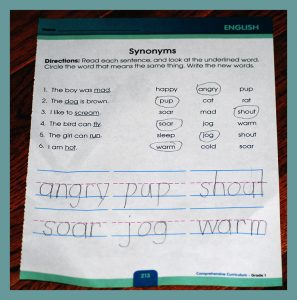 ENGLISH
Synonyms
Directions: Read each sentence, and look at the underlined word.
Circle the word that means the same thing. Write the new words.
1. The boy was mad. happy angry pup
2. The dog is brown. pup cat rat
3. I like to scream. soar mad shout
4. The bird can fly. soar jog warm
5. The girl can run. sleep jog shout
6. I am hot. warm cold soar
angry pup shout
soar jog warm
213
Comprehensive Curriculum - Grade 1